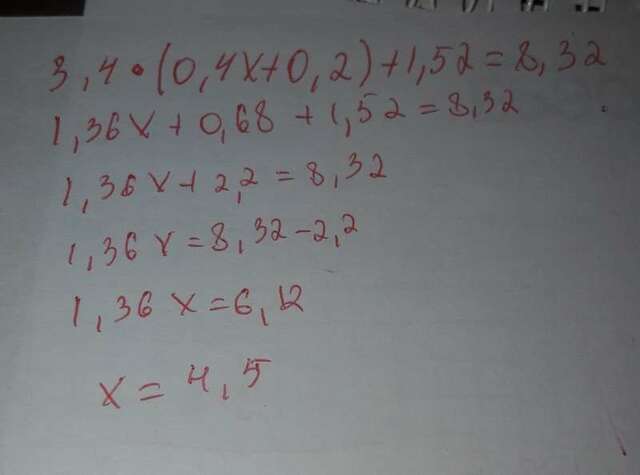 3,4•(0,4x+0,2)+1,52=8,32
1,36x+0,68+1,52=8,32
1,36x+2,2=8,32
1,36x=8,32-2,2
1,36x=6,12
x=4,5